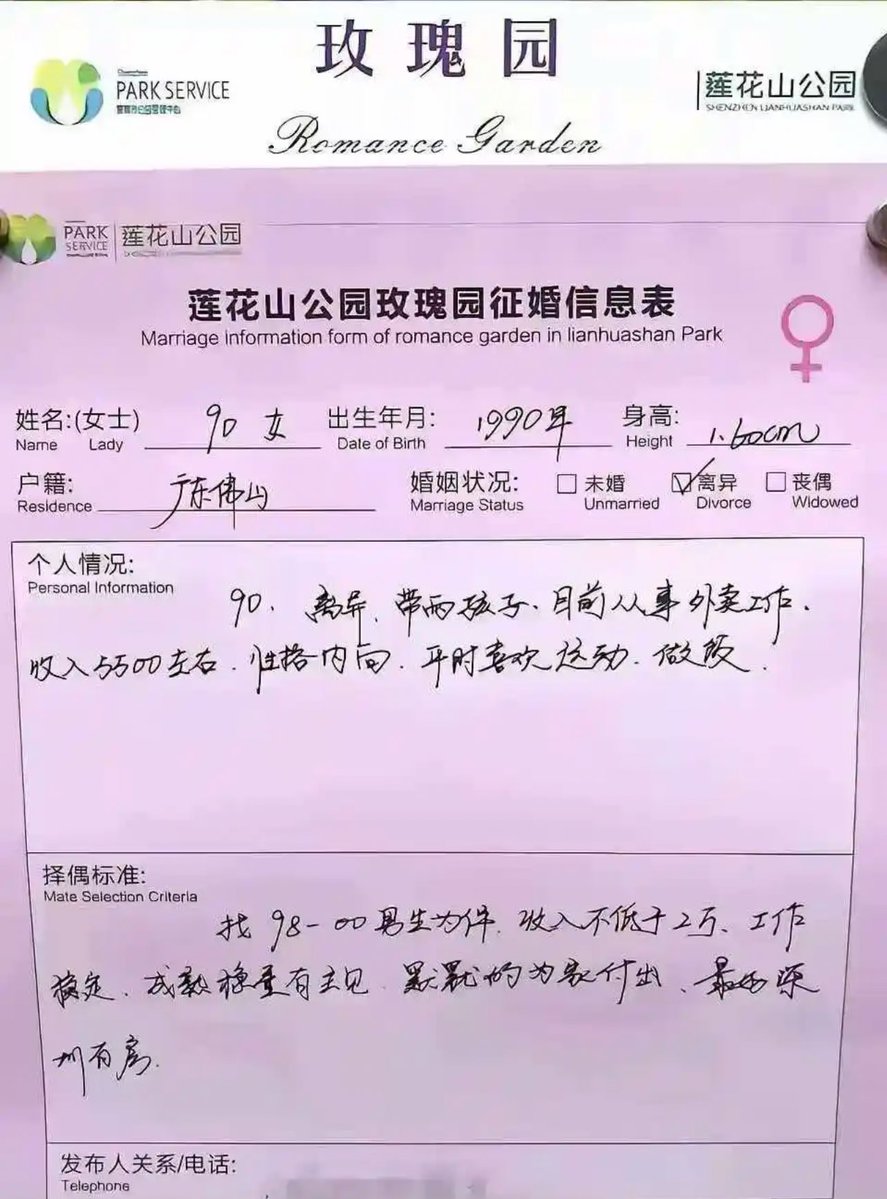 玫瑰园
PARK SERVICE
莲花山公园
SHENZHEN LIANHUASHAN PARK
Romance Garden
PARK SERVICE 莲花山公园
莲花山公园玫瑰园征婚信息表
Marriage information form of romance garden in lianhuashan Park
姓名:(女士) 90 女 出生年月: 1990年 身高: 1.60cm
Name Lady Date of Birth Height
户籍: 广东佛山 婚姻状况: 未婚 离异 丧偶
Residence Marriage Status Unmarried Divorce Widowed
个人情况:
Personal Information
90. 离异. 带两孩子. 目前从事外卖工作.
收入5500左右. 性格内向. 平时喜欢运动. 做饭.
择偶标准:
Mate Selection Criteria
找 98-00男生为伴. 收入不低于2万、工作
稳定. 成熟稳重有主见. 默默的为家付出、最好深
圳有房.
发布人关系/电话:
Telephone